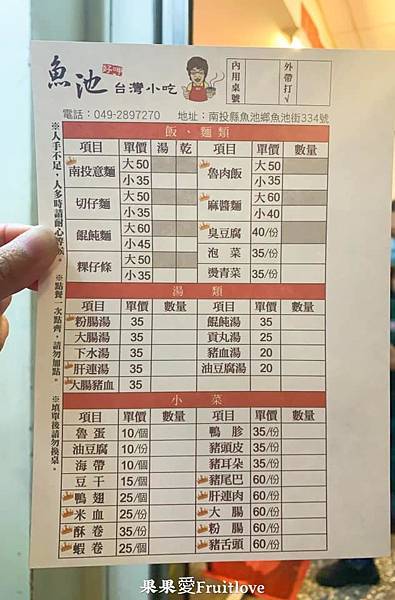 魚池 好呷 台灣小吃
內用桌號
外帶打√
電話：049-2897270 地址：南投縣魚池鄉魚池街334號
飯、麵類
項目 單價 湯 乾 項目 單價 數量
南投意麵 大50 小35 魯肉飯 大50 小35
切仔麵 大50 小35 麻醬麵 大60 小40
餛飩麵 大60 小45 臭豆腐 40/份
泡菜 35/份
粿仔條 大50 小35 燙青菜 35/份
湯類
項目 單價 數量 項目 單價 數量
粉腸湯 35 餛飩湯 35
大腸湯 35 貢丸湯 25
下水湯 35 豬血湯 20
肝連湯 35 油豆腐湯 20
大腸豬血 35
小菜
項目 單價 數量 項目 單價 數量
魯蛋 10/個 鴨胗 35/份
油豆腐 10/個 豬頭皮 35/份
海帶 10/個 豬耳朵 35/份
豆干 15/個 豬尾巴 60/份
鴨翅 25/個 肝連肉 60/份
米血 25/個 大腸 60/份
酥卷 35/份 粉腸 60/份
蝦卷 25/個 豬舌頭 60/份
※人手不足，人多時請耐心等候。 ※點餐一次點齊，請勿加點。 ※填單後請勿換桌。
果果愛Fruitlove